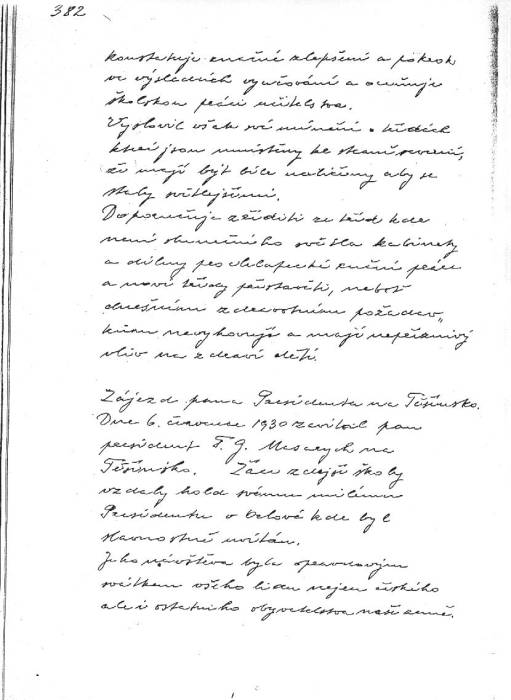 382
konstatuje značné zlepšení a pokrok
ve výsledcích vyučování a oceňuje
školskou práci učitelstva.
Vyslovil však své mínění o třídách
které jsou umístěny ke straně severní,
že mají být bíle natřeny aby se
staly světlejšími.
Doporučuje zříditi ze tříd kde
není slunečního světla kabinety
a dílny pro chlapecké ruční práce
a nové třídy přistavěti, neboť
dnešním zdravotním požadav„
kům nevyhovují a mají nepříznivý
vliv na zdraví dětí.
Zájezd pana Presidenta na Těšínsko.
Dne 6. července 1930 zavítal pan
president T. G. Masaryk na
Těšínsko. Žáci zdejší školy
vzdaly hold svému milému
Presidentu v Orlové kde byl
slavnostně uvítán.
Jeho návštěva byla opravdovým
svátkem všeho lidu nejen českého
ale i ostatního obyvatelstva naší země.